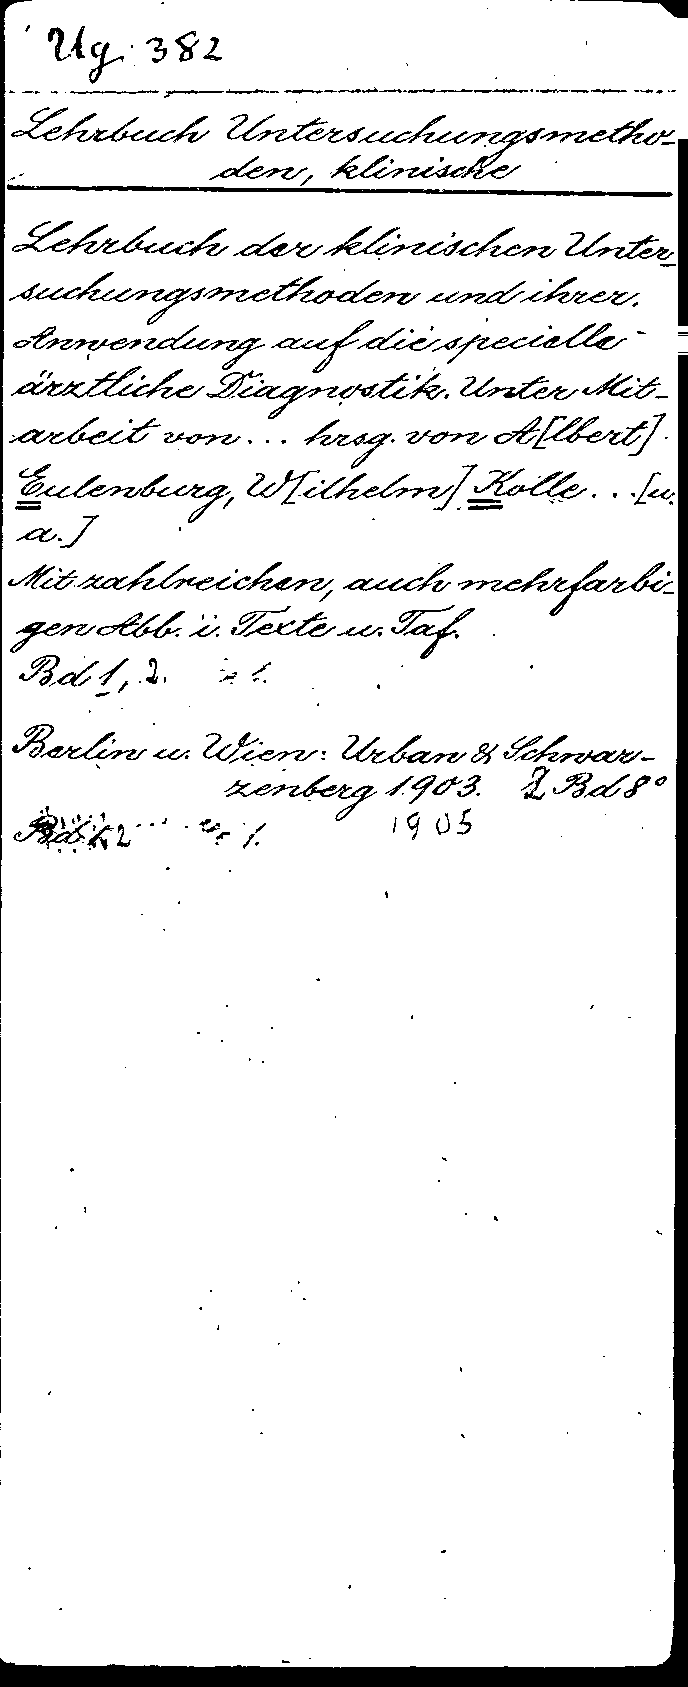 Ug 382
Lehrbuch Untersuchungsmetho-
den, klinische
Lehrbuch der klinischen Unter-
suchungsmethoden und ihrer
Anwendung auf die specielle
ärztliche Diagnostik. Unter Mit-
arbeit von... hrsg. von A[lbert]
Eulenburg, W[ilhelm] Kolle... [u.
a.]
Mit zahlreichen, auch mehrfarbi-
gen Abb. i. Texte u. Taf.
Bd 1, 2.
Berlin u. Wien: Urban & Schwar-
zenberg 1903. 2 Bd 8°
1905